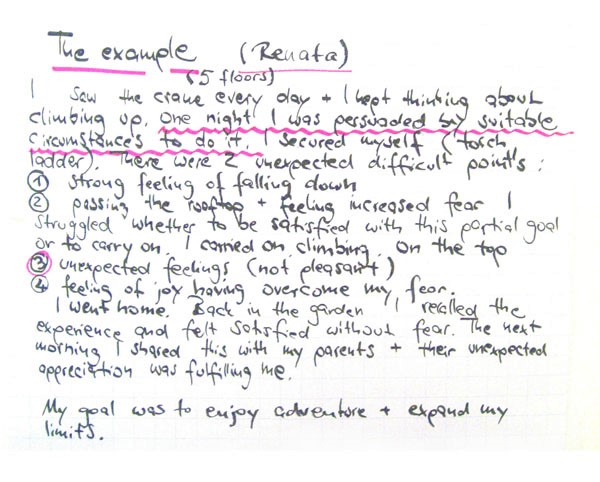 The example (Renata)
(5 floors)
I saw the crane every day + I kept thinking about
climbing up. One night I was persuaded by suitable
circumstances to do it. I secured myself (torch
ladder). There were 2 unexpected difficult points:
① strong feeling of falling down
② passing the rooftop + feeling increased fear I
struggled whether to be satisfied with this partial goal
or to carry on. I carried on climbing. On the top
③ unexpected feelings (not pleasant)
④ feeling of joy having overcome my fear.
I went home. Back in the garden I recalled the
experience and felt satisfied without fear. The next
morning I shared this with my parents + their unexpected
appreciation was fulfilling me.
My goal was to enjoy adventure + expand my
limits.